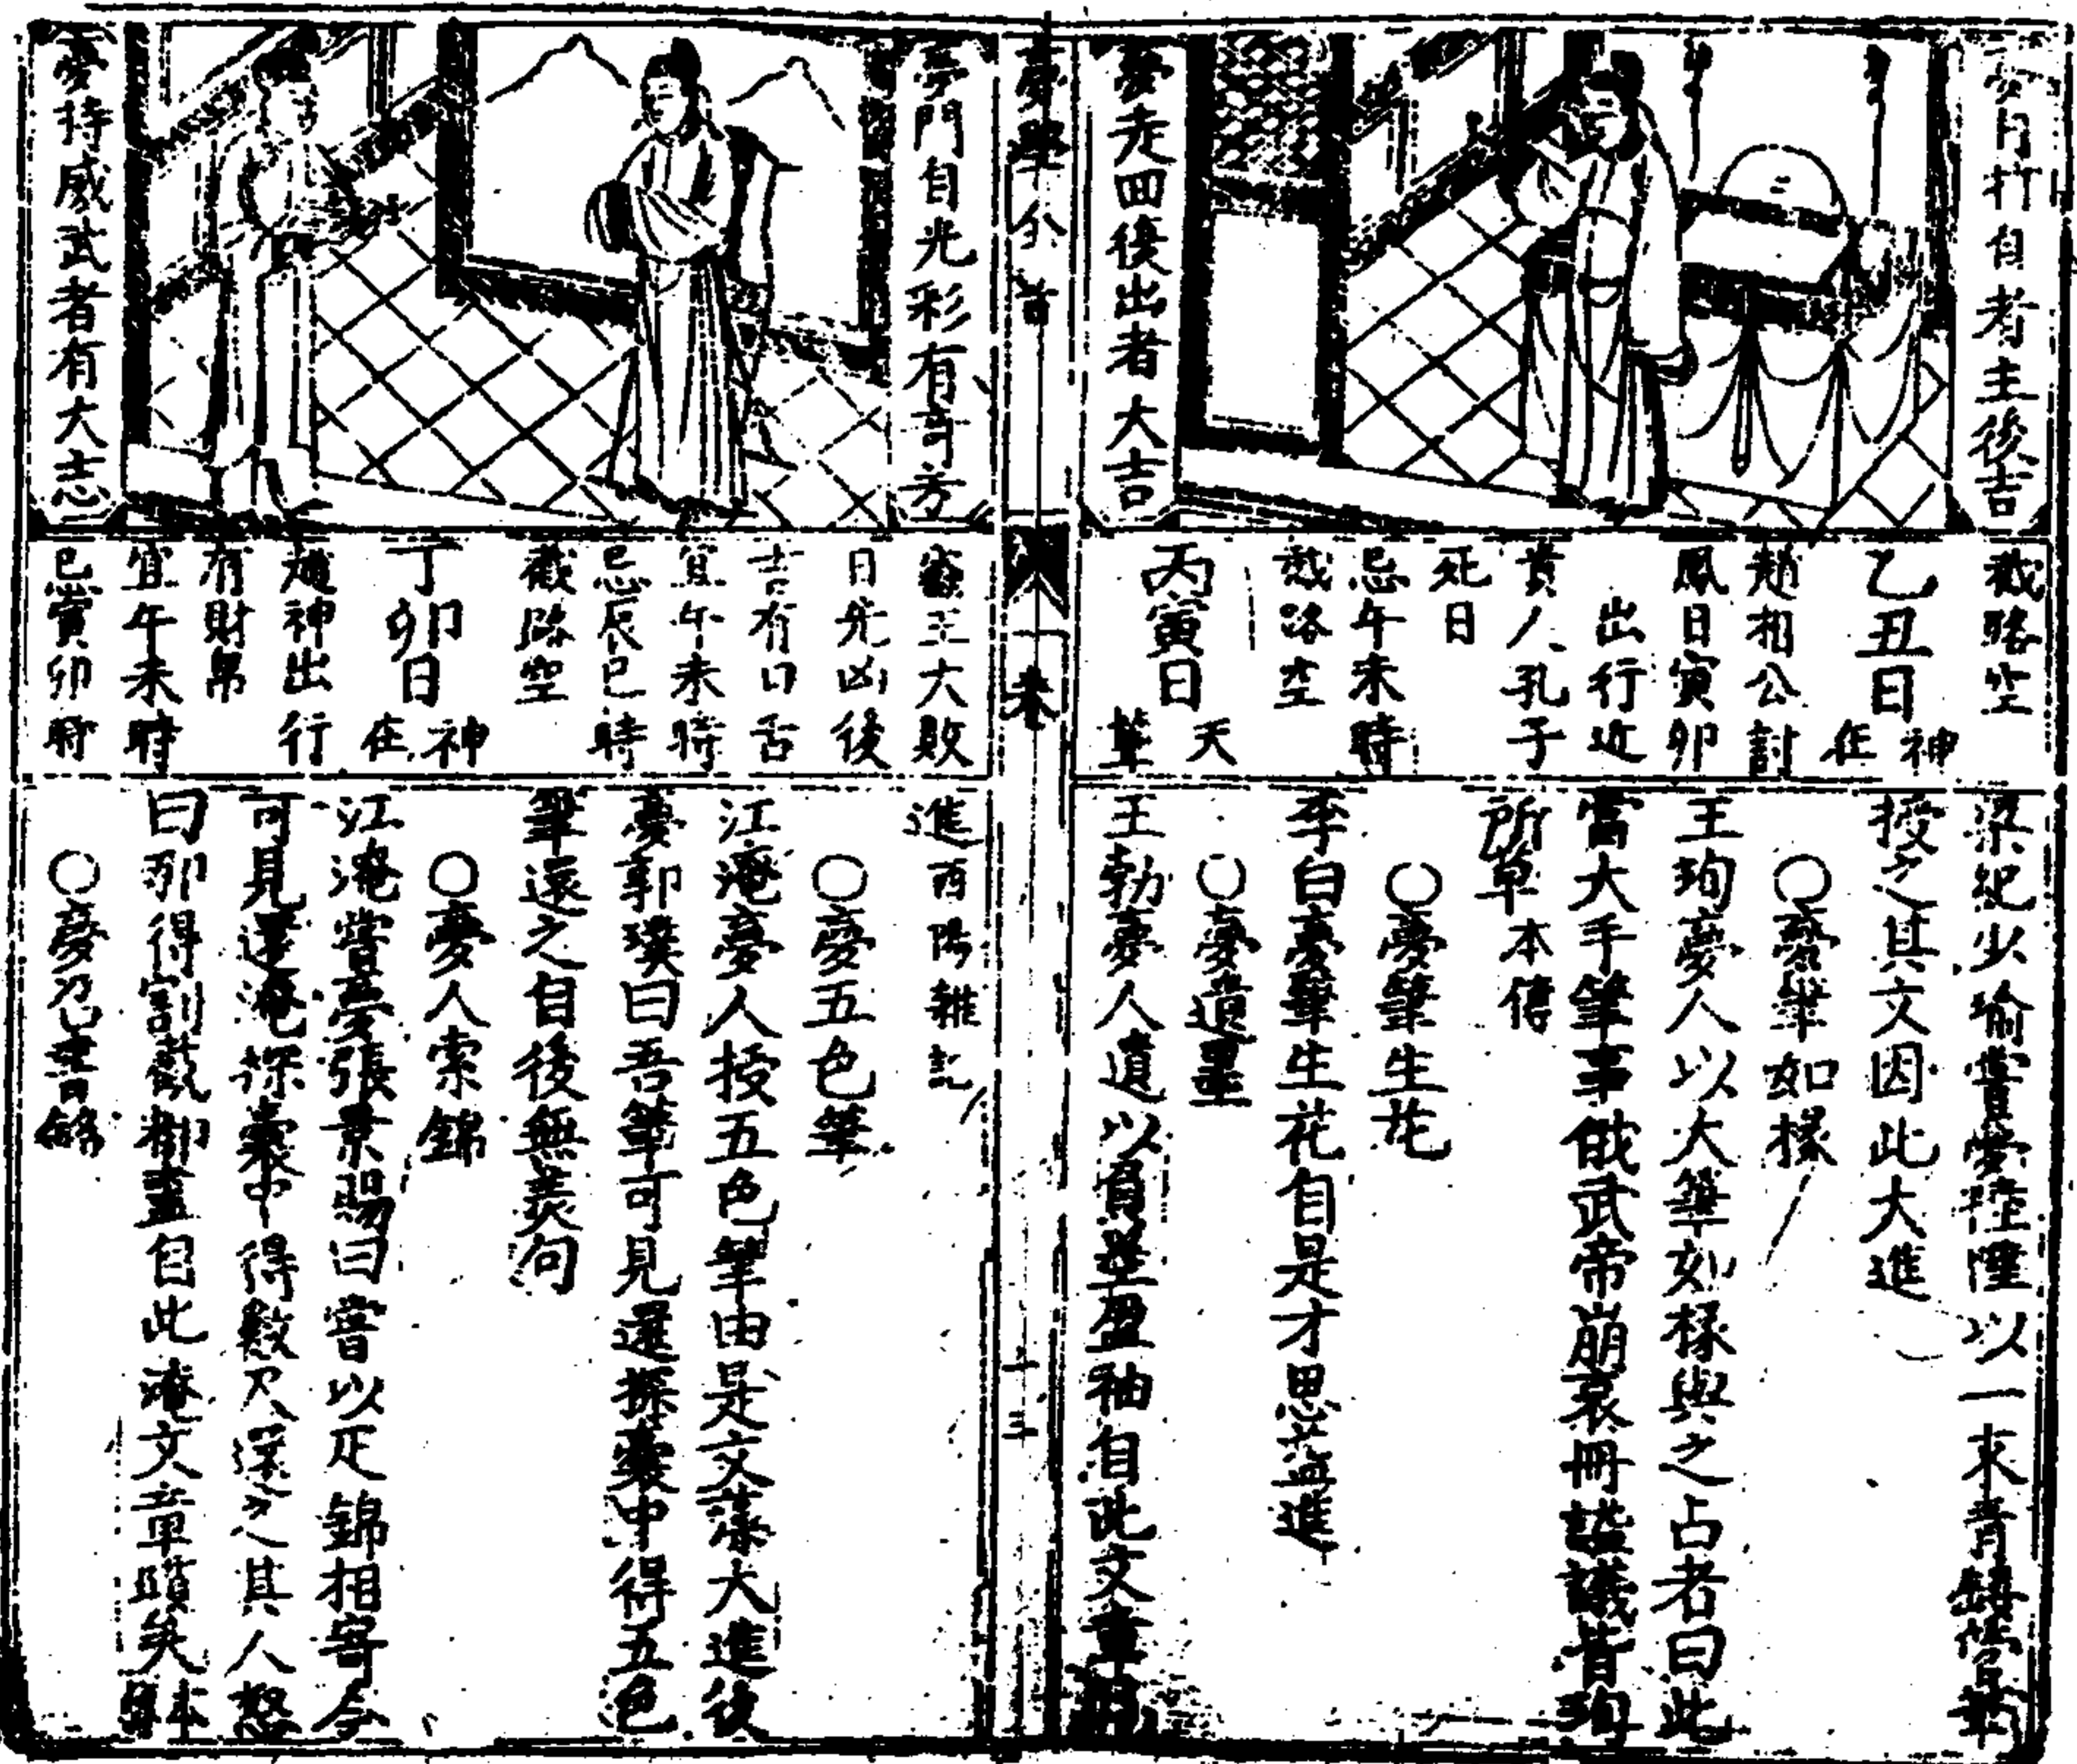 夢有打自者主後吉
夢走回後出者大吉
截路空
乙丑日神在
趙相公討
鳳日寅卯
出行近
貴人孔子
死日
忌午未時
截路空
丙寅日天
梁紀少瑜嘗夢陸倕以一束青鏤管筆
授之其文因此大進
○夢筆如椽
王珣夢人以大筆如椽與之占者曰此
當大手筆事俄武帝崩哀冊諡議皆珣
所草本傳
○夢筆生花
李白夢筆生花自是才思益進
○夢遺墨
王勃夢人遺以負墨盈袖自此文章
夢學全書
一卷
十三
夢門自光彩有奇芳
夢持威武者有大志
王大敗
日先凶後
吉有口舌
宜午未時
忌辰巳時
截路空
丁卯日神在
趙神出行
有財帛
宜午未時
忌寅卯時
進酉陽雜記
○夢五色筆
江淹夢人授五色筆由是文藻大進後
夢郭璞曰吾筆可見還探囊中得五色
筆還之自後無美句
○夢人索錦
江淹嘗夢張景陽曰嘗以疋錦相寄今
可見還淹探囊中得數尺還之其人怒
曰那得割截都盡自此淹文章躓矣本傳